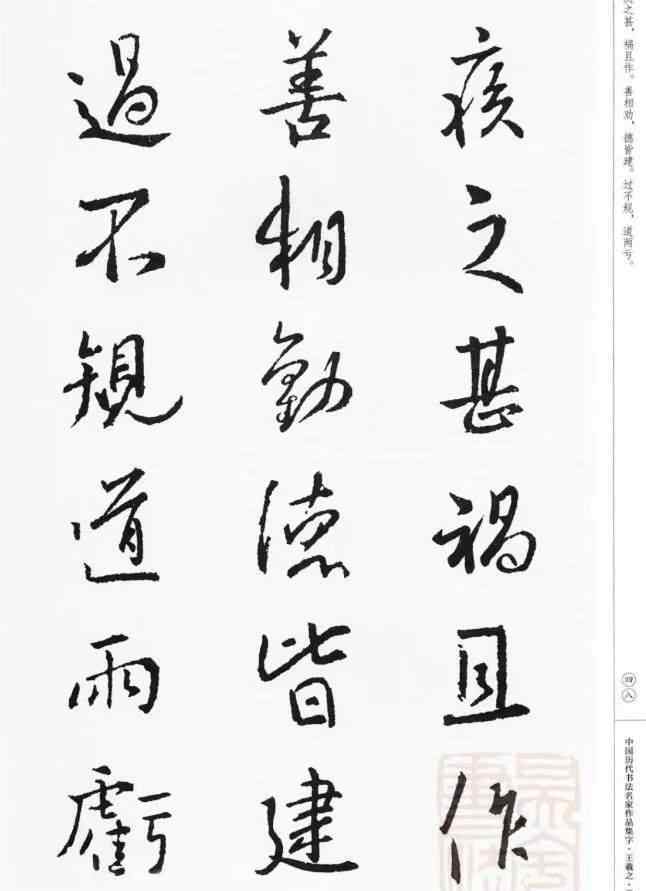 疾之甚禍且作
善相勸德皆建
過不規道兩虧
之甚，祸且作。善相劝，德皆建。过不规，道两亏。
四八
中国历代书法名家作品集字·王羲之·